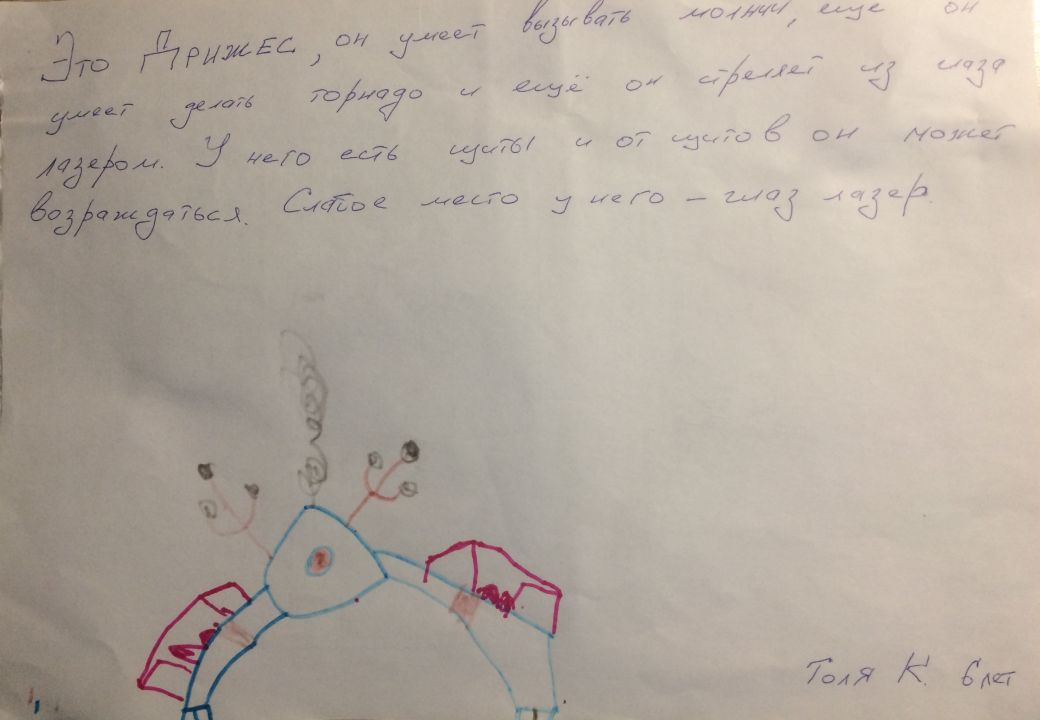 Это Дрижес, он умеет вызывать молнии, ещё он
умеет делать торнадо и ещё он стреляет из глаза
лазером. У него есть щиты и от щитов он может
возраждаться. Слабое место у него – глаз лазер.
Толя К. 6 лет